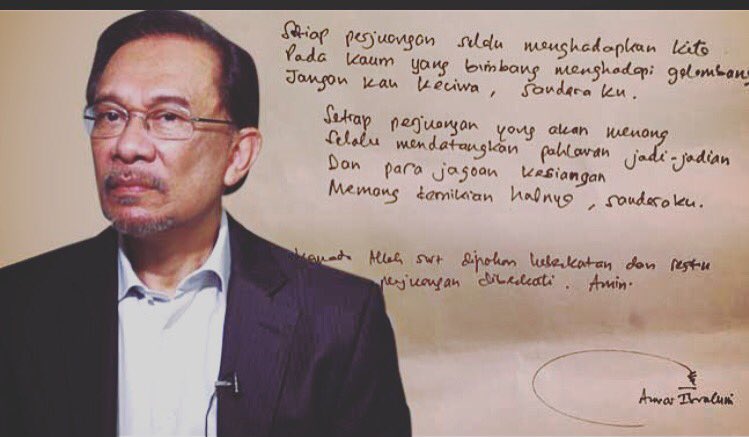 Setiap perjuangan selalu menghadapkan kita
Pada kaum yang bimbang menghadapi gelombang
Jangan kau keciwa, saudara ku.
Setiap perjuangan yang akan menang
Selalu mendatangkan pahlawan jadi-jadian
Dan para jagoan kesiangan
Memang demikian halnya, saudaraku.
Allah swt dipohon keberkatan dan restu
perjuangan diberkati. Amin.
Anwar Ibrahim